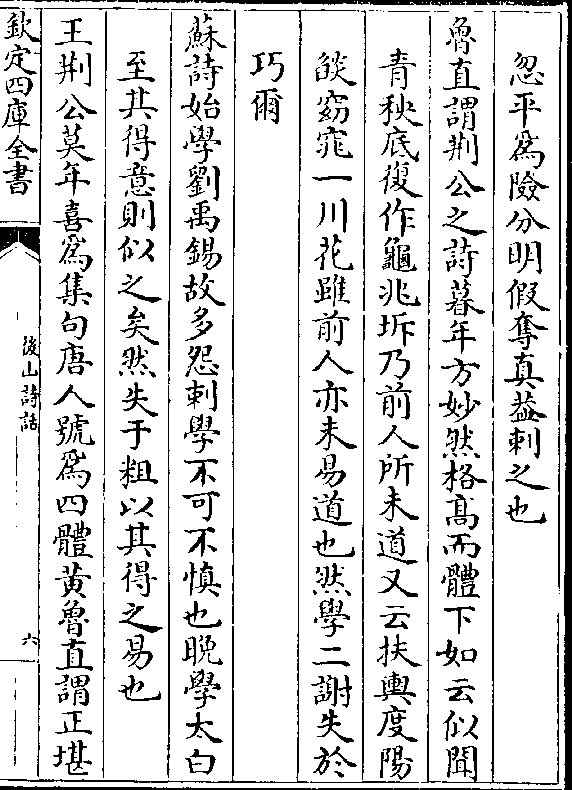 忽平為險分明假奪真葢刺之也
魯直謂荆公之詩暮年方妙然格髙而體下如云似聞
青秧底復作龜兆坼乃前人所未道又云扶輿度陽
燄窈窕一川花雖前人亦未易道也然學二謝失於
巧爾
蘇詩始學劉禹錫故多怨刺學不可不慎也晚學太白
至其得意則似之矣然失于粗以其得之易也
王荆公莫年喜為集句唐人號為四體黄魯直謂正堪
欽定四庫全書
後山詩話
六